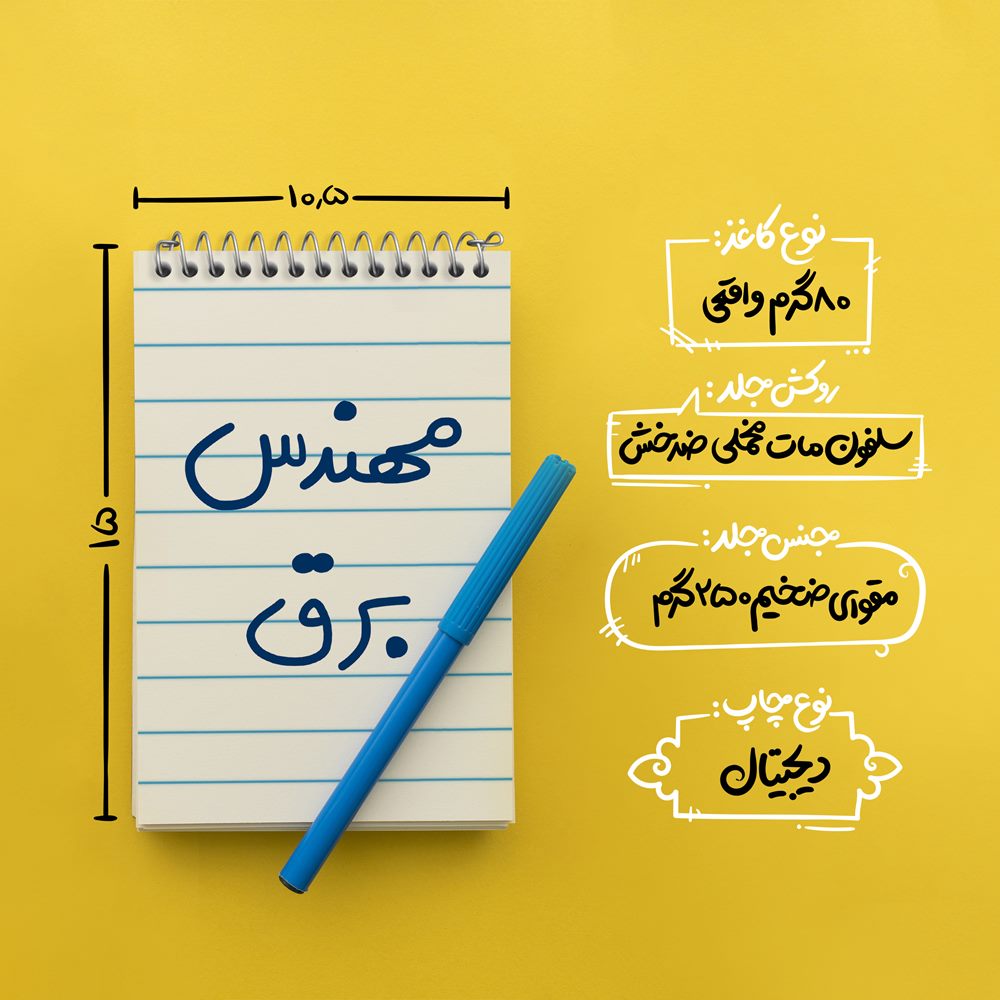 ۱۰٫۵
۱۵
مهندس
برق
نوع کاغذ:
۸۰ گرم واقعی
روکش جلد:
سلفون مات مخملی ضدخش
جنس جلد:
مقوای ضخیم ۲۵۰ گرم
نوع چاپ:
دیجیتال